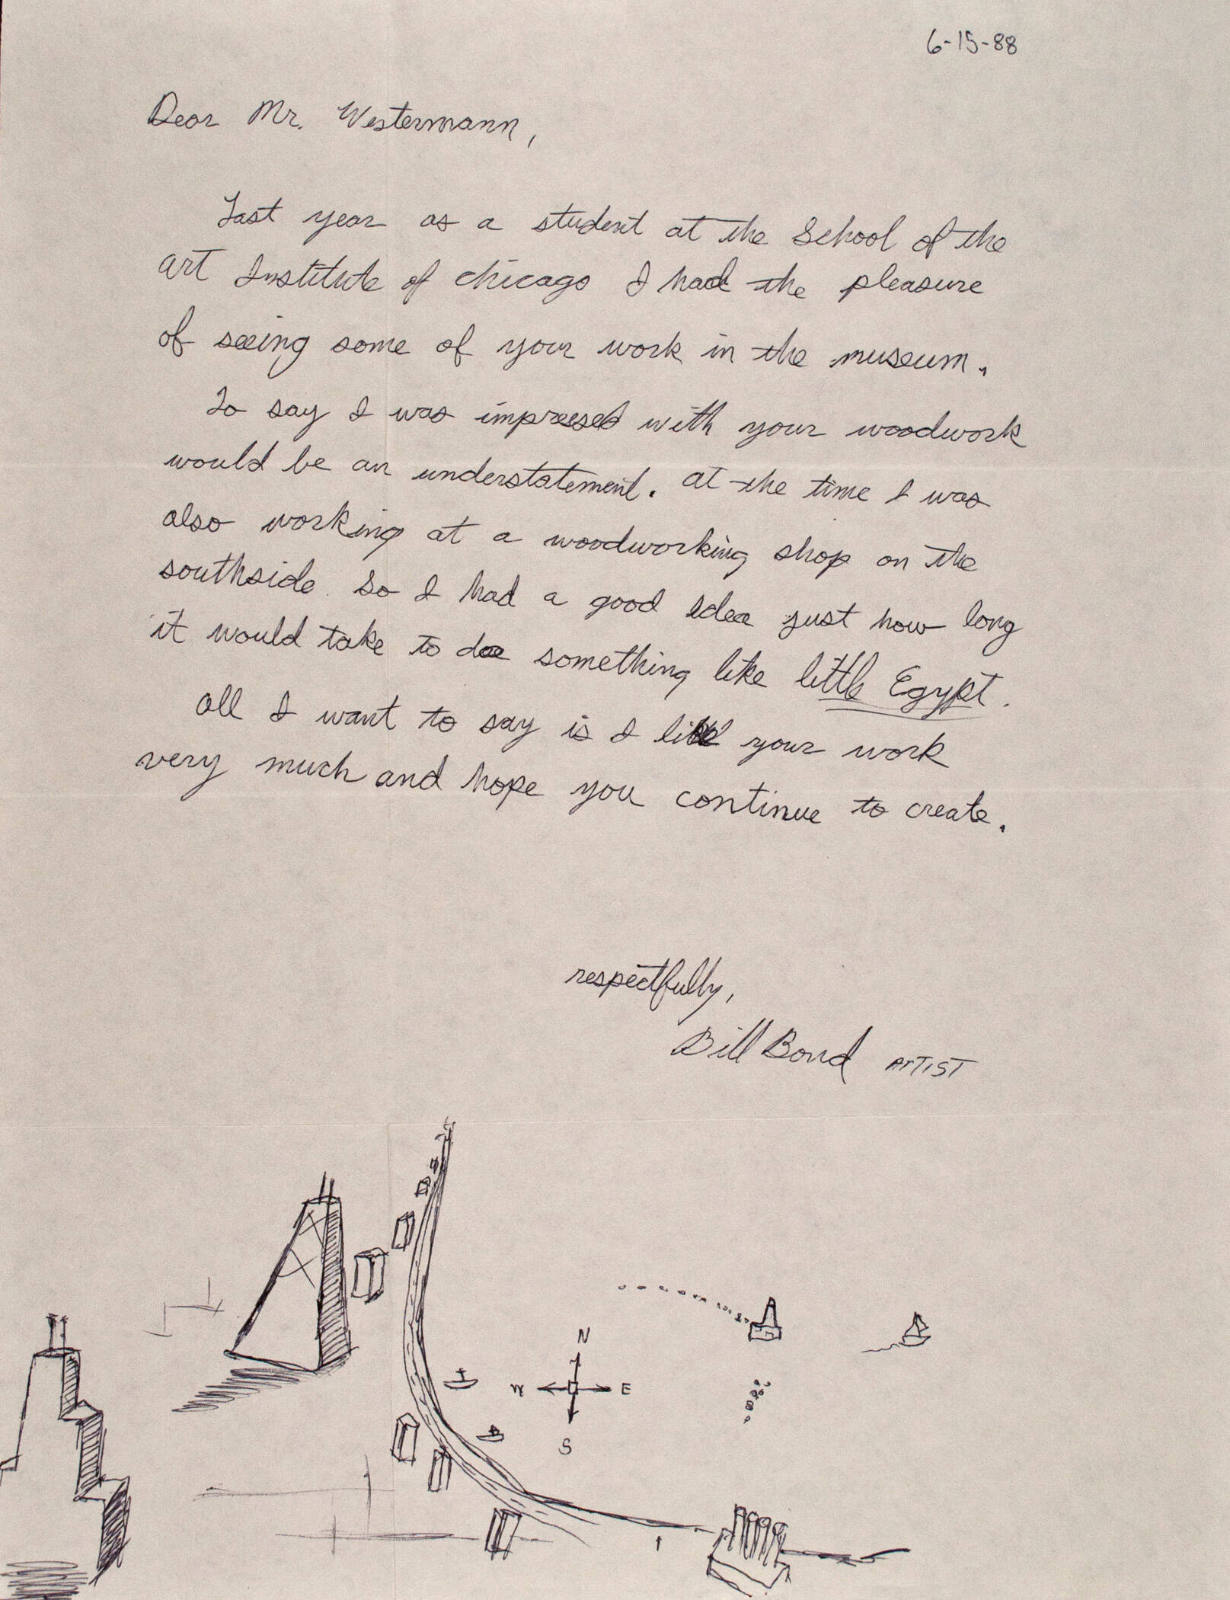 6-15-88
Dear Mr. Westermann,
Last year as a student at the School of the
art Institute of chicago I had the pleasure
of seeing some of your work in the museum.
To say I was impressed with your woodwork
would be an understatement. at the time I was
also working at a woodworking shop on the
southside. So I had a good idea just how long
it would take to do something like little Egypt.
all I want to say is I like your work
very much and hope you continue to create.
respectfully,
Bill Bond ARTIST
N
W E
S